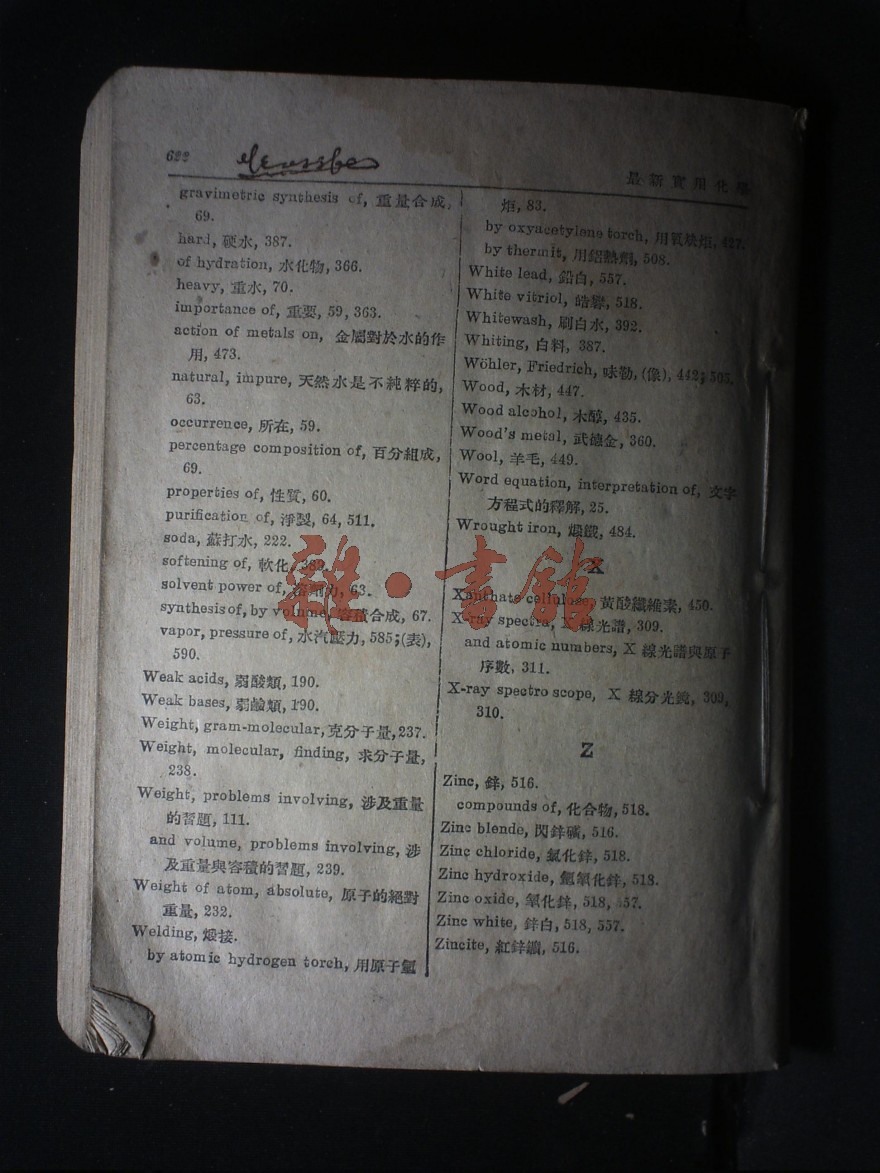 622
最新實用化學
gravimetric synthesis of, 重量合成,
69.
hard, 硬水, 387.
of hydration, 水化物, 366.
heavy, 重水, 70.
importance of, 重要, 59, 363.
action of metals on, 金屬對於水的作
用, 473.
natural, impure, 天然水是不純粹的,
63.
occurrence, 所在, 59.
percentage composition of, 百分組成,
69.
properties of, 性質, 60.
purification of, 淨製, 64, 511.
soda, 蘇打水, 222.
softening of, 軟化,
solvent power of, 63.
synthesis of, by volume, 容積合成, 67.
vapor, pressure of, 水汽壓力, 585; (表),
590.
Weak acids, 弱酸類, 190.
Weak bases, 弱鹼類, 190.
Weight, gram-molecular, 克分子量, 237.
Weight, molecular, finding, 求分子量,
238.
Weight, problems involving, 涉及重量
的習題, 111.
and volume, problems involving, 涉
及重量與容積的習題, 239.
Weight of atom, absolute, 原子的絕對
重量, 232.
Welding, 煅接.
by atomic hydrogen torch, 用原子氫
炬, 83.
by oxyacetylene torch, 用氧炔炬, 427.
by thermit, 用鋁熱劑, 508.
White lead, 鉛白, 557.
White vitriol, 皓礬, 518.
Whitewash, 刷白水, 392.
Whiting, 白料, 387.
Wöhler, Friedrich, 味勒, (像), 442; 505.
Wood, 木材, 447.
Wood alcohol, 木醇, 435.
Wood's metal, 武德金, 360.
Wool, 羊毛, 449.
Word equation, interpretation of, 文字
方程式的釋解, 25.
Wrought iron, 煅鐵, 484.
X
Xanthate cellulose, 黃酸纖維素, 450.
X-ray spectra, X 線光譜, 309.
and atomic numbers, X 線光譜與原子
序數, 311.
X-ray spectro scope, X 線分光鏡, 309,
310.
Z
Zinc, 鋅, 516.
compounds of, 化合物, 518.
Zinc blende, 閃鋅礦, 516.
Zinc chloride, 氯化鋅, 518.
Zinc hydroxide, 氫氧化鋅, 518.
Zinc oxide, 氧化鋅, 518, 557.
Zinc white, 鋅白, 518, 557.
Zincite, 紅鋅鑛, 516.
雜·書館